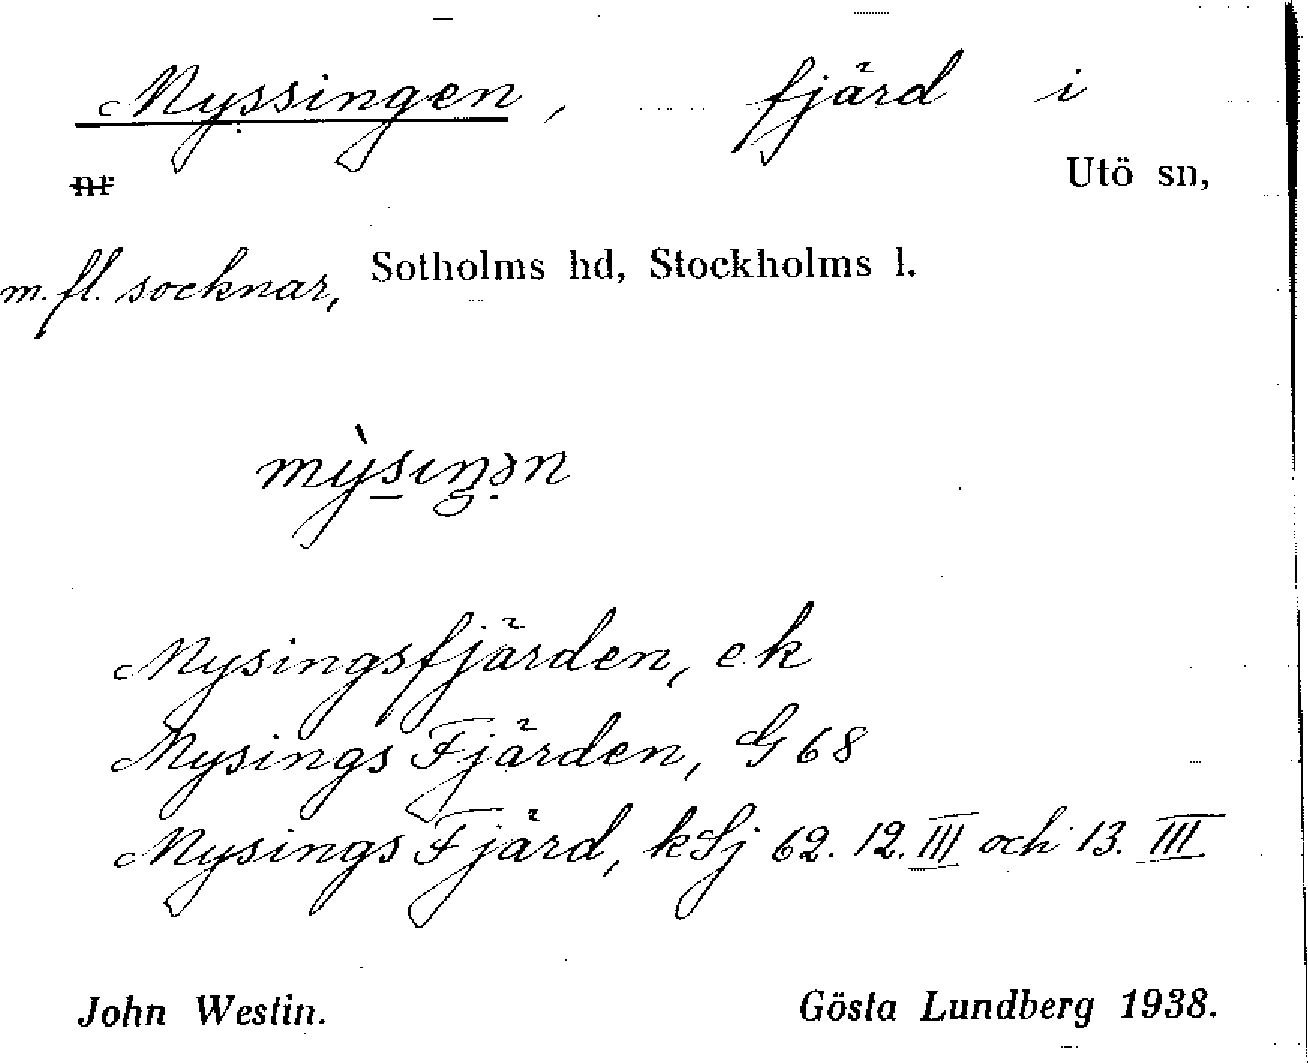 Myssingen, fjärd i
nr Utö sn,
m. fl. socknar, Sotholms hd, Stockholms l.
mỳsıŋən
Mysingsfjärden, ek
Mysings Fjärden, G 68
Mysings Fjärd, kSj 62. 12. III och 13. III
John Westin. Gösta Lundberg 1938.